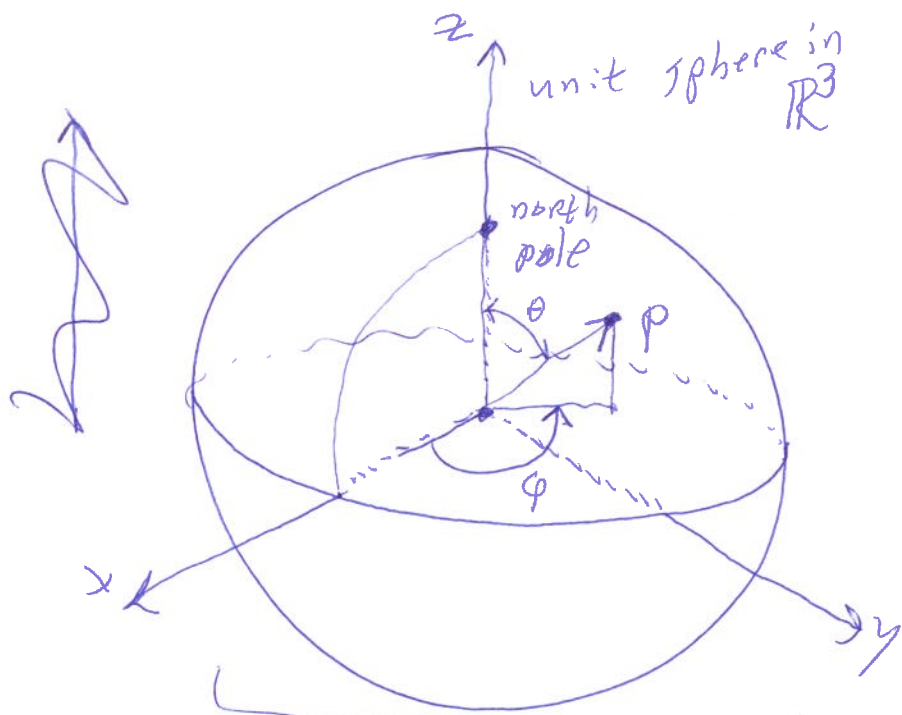 z
unit sphere in
ℝ³
north
pole
θ
P
φ
x
y